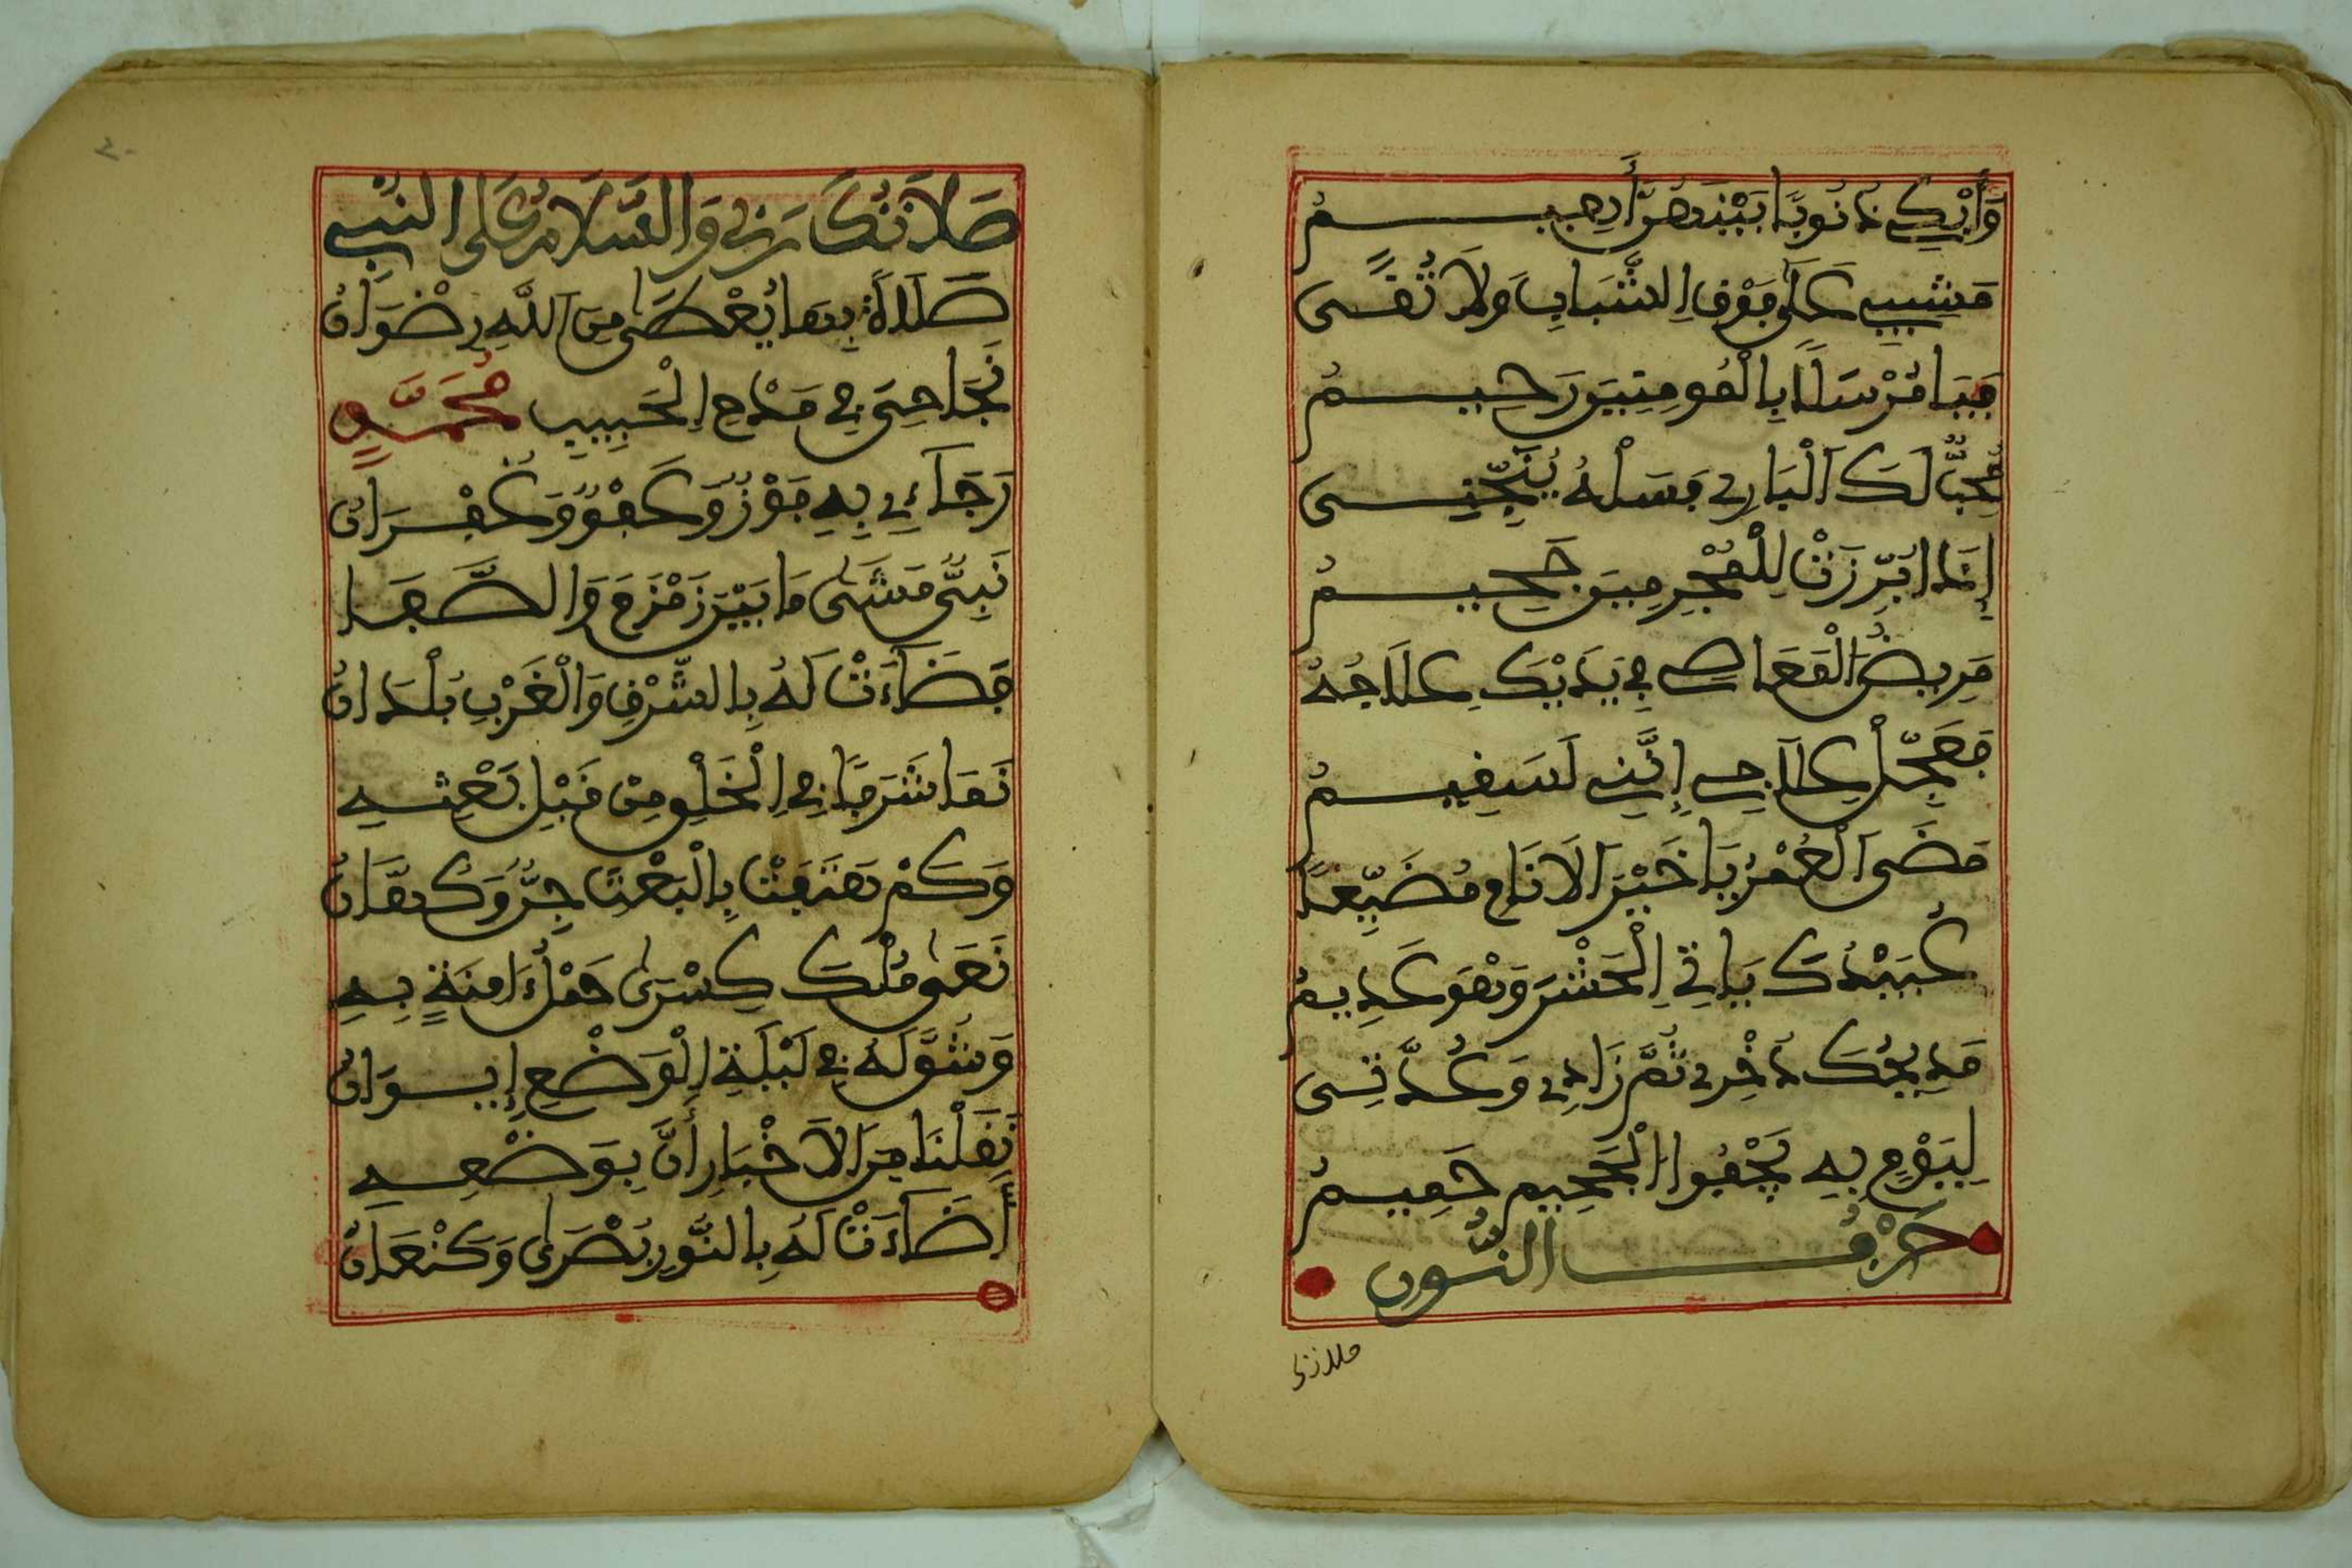 وَأَبْكِي ذُنُوبًا بَيْنَهُنَّ أَهِيمُ
مَشِيبِي عَلَى فَوْقِ الشَّبَابِ وَلَا تُقًى
فَيَا مُرْسَلًا بِالْمُومِنِينَ رَحِيمُ
مُحِبٌّ لَكَ الْبَارِي فَسَلْهُ يُنَجِّنِي
إِذَا ابْرِزَتْ لِلْمُجْرِمِينَ جَحِيمُ
مَرِيضُ الْمَعَاصِي فِي يَدَيْكَ عِلَاجُهُ
فَعَجِّلْ عِلَاجِي إِنَّنِي لَسَقِيمُ
مَضَى الْعُمْرُ يَا خَيْرَ الَانَامِ مُضَيَّعًا
عُبَيْدُكَ يَاتِي الْحَشْرَ وَهْوَ عَدِيمُ
مَدِيحُكَ ذُخْرِي ثُمَّ زَادِي وَعُدَّتِي
لِيَوْمٍ بِهِ يَجْفُوا الْحَمِيمَ حَمِيمُ
حَرْفُ النُّون
صلاتك ربي
صَلَاتُكَ رَبِّي وَالسَّلَامُ عَلَى النَّبِي
صَلَاةً بِهَا يُعْطَى مِنَ اللَّهِ رِضْوَانُ
نَجَاحِيَ فِي مَدْحِ الْحَبِيبِ مُحَمَّدٍ
رَجَاءِي بِهِ فَوْزٌ وَعَفْوٌ وَغُفْرَانُ
نَبِيٌّ مَشَى مَا بَيْنَ زَمْزَمَ وَالصَّفَا
فَضَاءَتْ لَهُ بِالشَّرْقِ وَالْغَرْبِ بُلْدَانُ
نَمَا شَرَفًا فِي الْخَلْقِ مِنْ قَبْلِ بَعْثِهِ
وَكَمْ هَتَفَتْ بِالْبَعْثِ جِنٌّ وَكُهَّانُ
نَعَى مُلْكَ كِسْرَى حَمْلُ ءَامِنَةٍ بِهِ
وَشُقَّ لَهُ فِي لَيْلَةِ الْوَضْعِ إِيوَانُ
نَقَلْنَا مِنَ الَاخْبَارِ أَنَّ بِوَضْعِهِ
أَضَاءَتْ لَهُ بِالنُّورِ بُصْرَى وَكَنْعَانُ